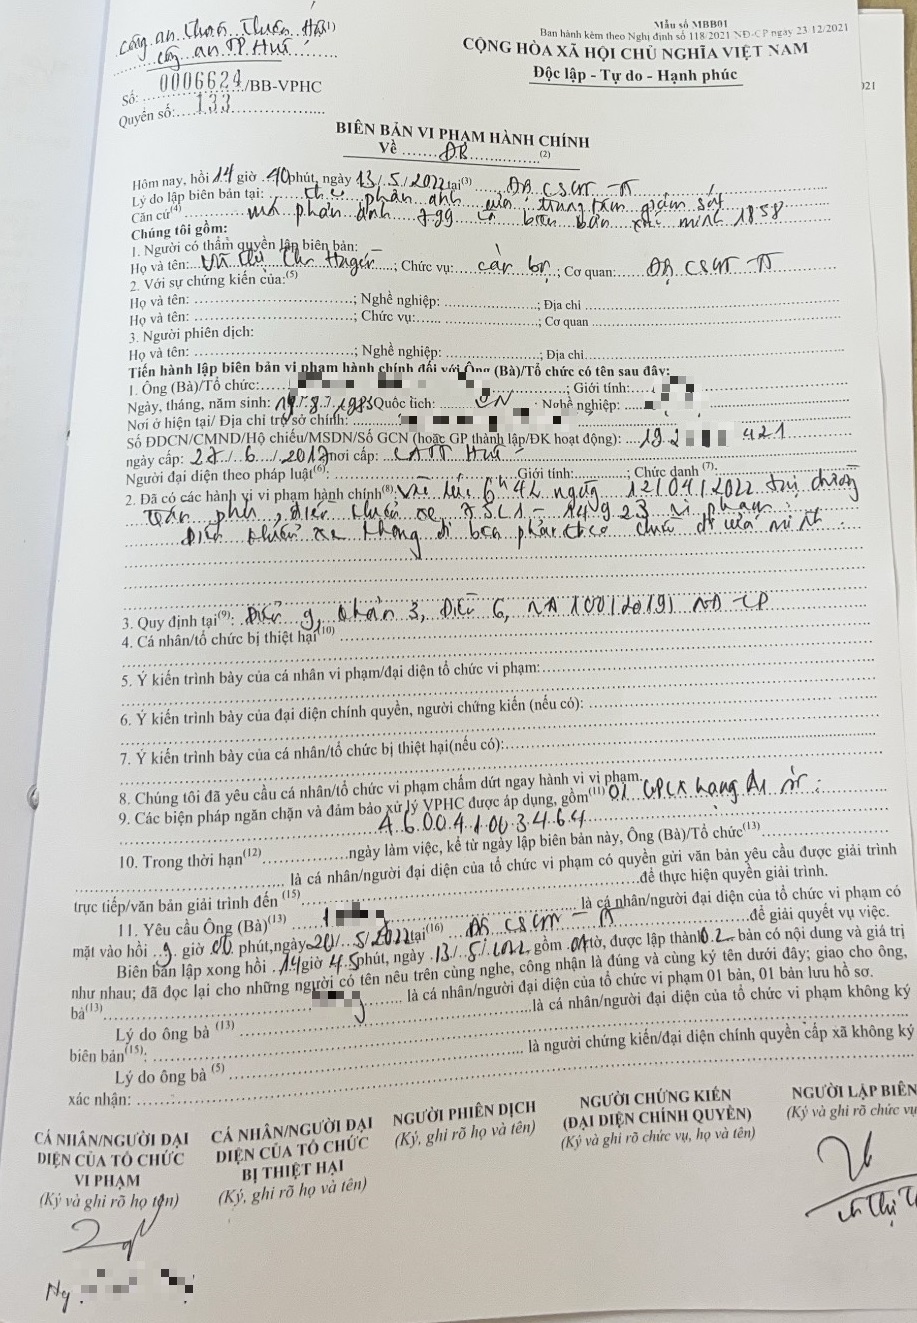 Mẫu số MBB01
Ban hành kèm theo Nghị định số 118/2021 NĐ-CP ngày 23/12/2021
CỘNG HÒA XÃ HỘI CHỦ NGHĨA VIỆT NAM
Độc lập - Tự do - Hạnh phúc
Công an Thừa Thiên Huế(1)
Công an TP Huế
Số: 0006624/BB-VPHC
Quyển số: 133
021
BIÊN BẢN VI PHẠM HÀNH CHÍNH
Về ĐB (2)
Hôm nay, hồi 14 giờ 40 phút, ngày 13/5/2022 tại(3) Đội CSGT - TT
Lý do lập biên bản tại: theo phản ánh của trung tâm giám sát
Căn cứ(4) mã phản ánh 799 và biên bản xác minh 1858
Chúng tôi gồm:
1. Người có thẩm quyền lập biên bản:
Họ và tên: Thị ; Chức vụ: cán bộ ; Cơ quan: Đội CSGT - TT
2. Với sự chứng kiến của:(5)
Họ và tên: ; Nghề nghiệp: ; Địa chỉ
Họ và tên: ; Chức vụ: ; Cơ quan
3. Người phiên dịch:
Họ và tên: ; Nghề nghiệp: ; Địa chỉ
Tiến hành lập biên bản vi phạm hành chính đối với Ông (Bà)/Tổ chức có tên sau đây:
1. Ông (Bà)/Tổ chức: ; Giới tính:
Ngày, tháng, năm sinh: 19/8/1983 Quốc tịch: VN Nghề nghiệp:
Nơi ở hiện tại/ Địa chỉ trụ sở chính:
Số ĐDCN/CMND/Hộ chiếu/MSDN/Số GCN (hoặc GP thành lập/ĐK hoạt động): 192 421
ngày cấp: 27/6/2017 nơi cấp: CATT Huế
Người đại diện theo pháp luật(6): Giới tính: ; Chức danh (7):
2. Đã có các hành vi vi phạm hành chính(8): Vào lúc 6h42 ngày 12/04/2022 tại đường
Trần Phú, điều khiển xe 75C1 - 14923 vi phạm:
Điều khiển xe không đi bên phải theo chiều đi của mình.
3. Quy định tại(9): Điểm g, khoản 3, Điều 6, NĐ 100/2019/NĐ-CP
4. Cá nhân/tổ chức bị thiệt hại(10)
5. Ý kiến trình bày của cá nhân vi phạm/đại diện tổ chức vi phạm:
6. Ý kiến trình bày của đại diện chính quyền, người chứng kiến (nếu có):
7. Ý kiến trình bày của cá nhân/tổ chức bị thiệt hại(nếu có):
8. Chúng tôi đã yêu cầu cá nhân/tổ chức vi phạm chấm dứt ngay hành vi vi phạm.
9. Các biện pháp ngăn chặn và đảm bảo xử lý VPHC được áp dụng, gồm(11) 01 GPLX hạng A1 số:
460041003464
10. Trong thời hạn(12) ngày làm việc, kể từ ngày lập biên bản này, Ông (Bà)/Tổ chức(13)
là cá nhân/người đại diện của tổ chức vi phạm có quyền gửi văn bản yêu cầu được giải trình
trực tiếp/văn bản giải trình đến (15) để thực hiện quyền giải trình.
11. Yêu cầu Ông (Bà)(13) là cá nhân/người đại diện của tổ chức vi phạm có
mặt vào hồi 9 giờ 00 phút, ngày 20/5/2022 tại(16) Đội CSGT - TT để giải quyết vụ việc.
Biên bản lập xong hồi 14 giờ 45 phút, ngày 13/5/2022 gồm 01 tờ, được lập thành 02 bản có nội dung và giá trị
như nhau; đã đọc lại cho những người có tên nêu trên cùng nghe, công nhận là đúng và cùng ký tên dưới đây; giao cho ông,
bà(13) là cá nhân/người đại diện của tổ chức vi phạm 01 bản, 01 bản lưu hồ sơ.
Lý do ông bà (13) là cá nhân/người đại diện của tổ chức vi phạm không ký
biên bản(15):
Lý do ông bà (5) là người chứng kiến/đại diện chính quyền cấp xã không ký
xác nhận:
CÁ NHÂN/NGƯỜI ĐẠI
DIỆN CỦA TỔ CHỨC
VI PHẠM
(Ký và ghi rõ họ tên)
CÁ NHÂN/NGƯỜI ĐẠI
DIỆN CỦA TỔ CHỨC
BỊ THIỆT HẠI
(Ký, ghi rõ họ và tên)
NGƯỜI PHIÊN DỊCH
(Ký, ghi rõ họ và tên)
NGƯỜI CHỨNG KIẾN
(ĐẠI DIỆN CHÍNH QUYỀN)
(Ký và ghi rõ chức vụ, họ và tên)
NGƯỜI LẬP BIÊN
(Ký và ghi rõ chức vụ
Thị
Ng